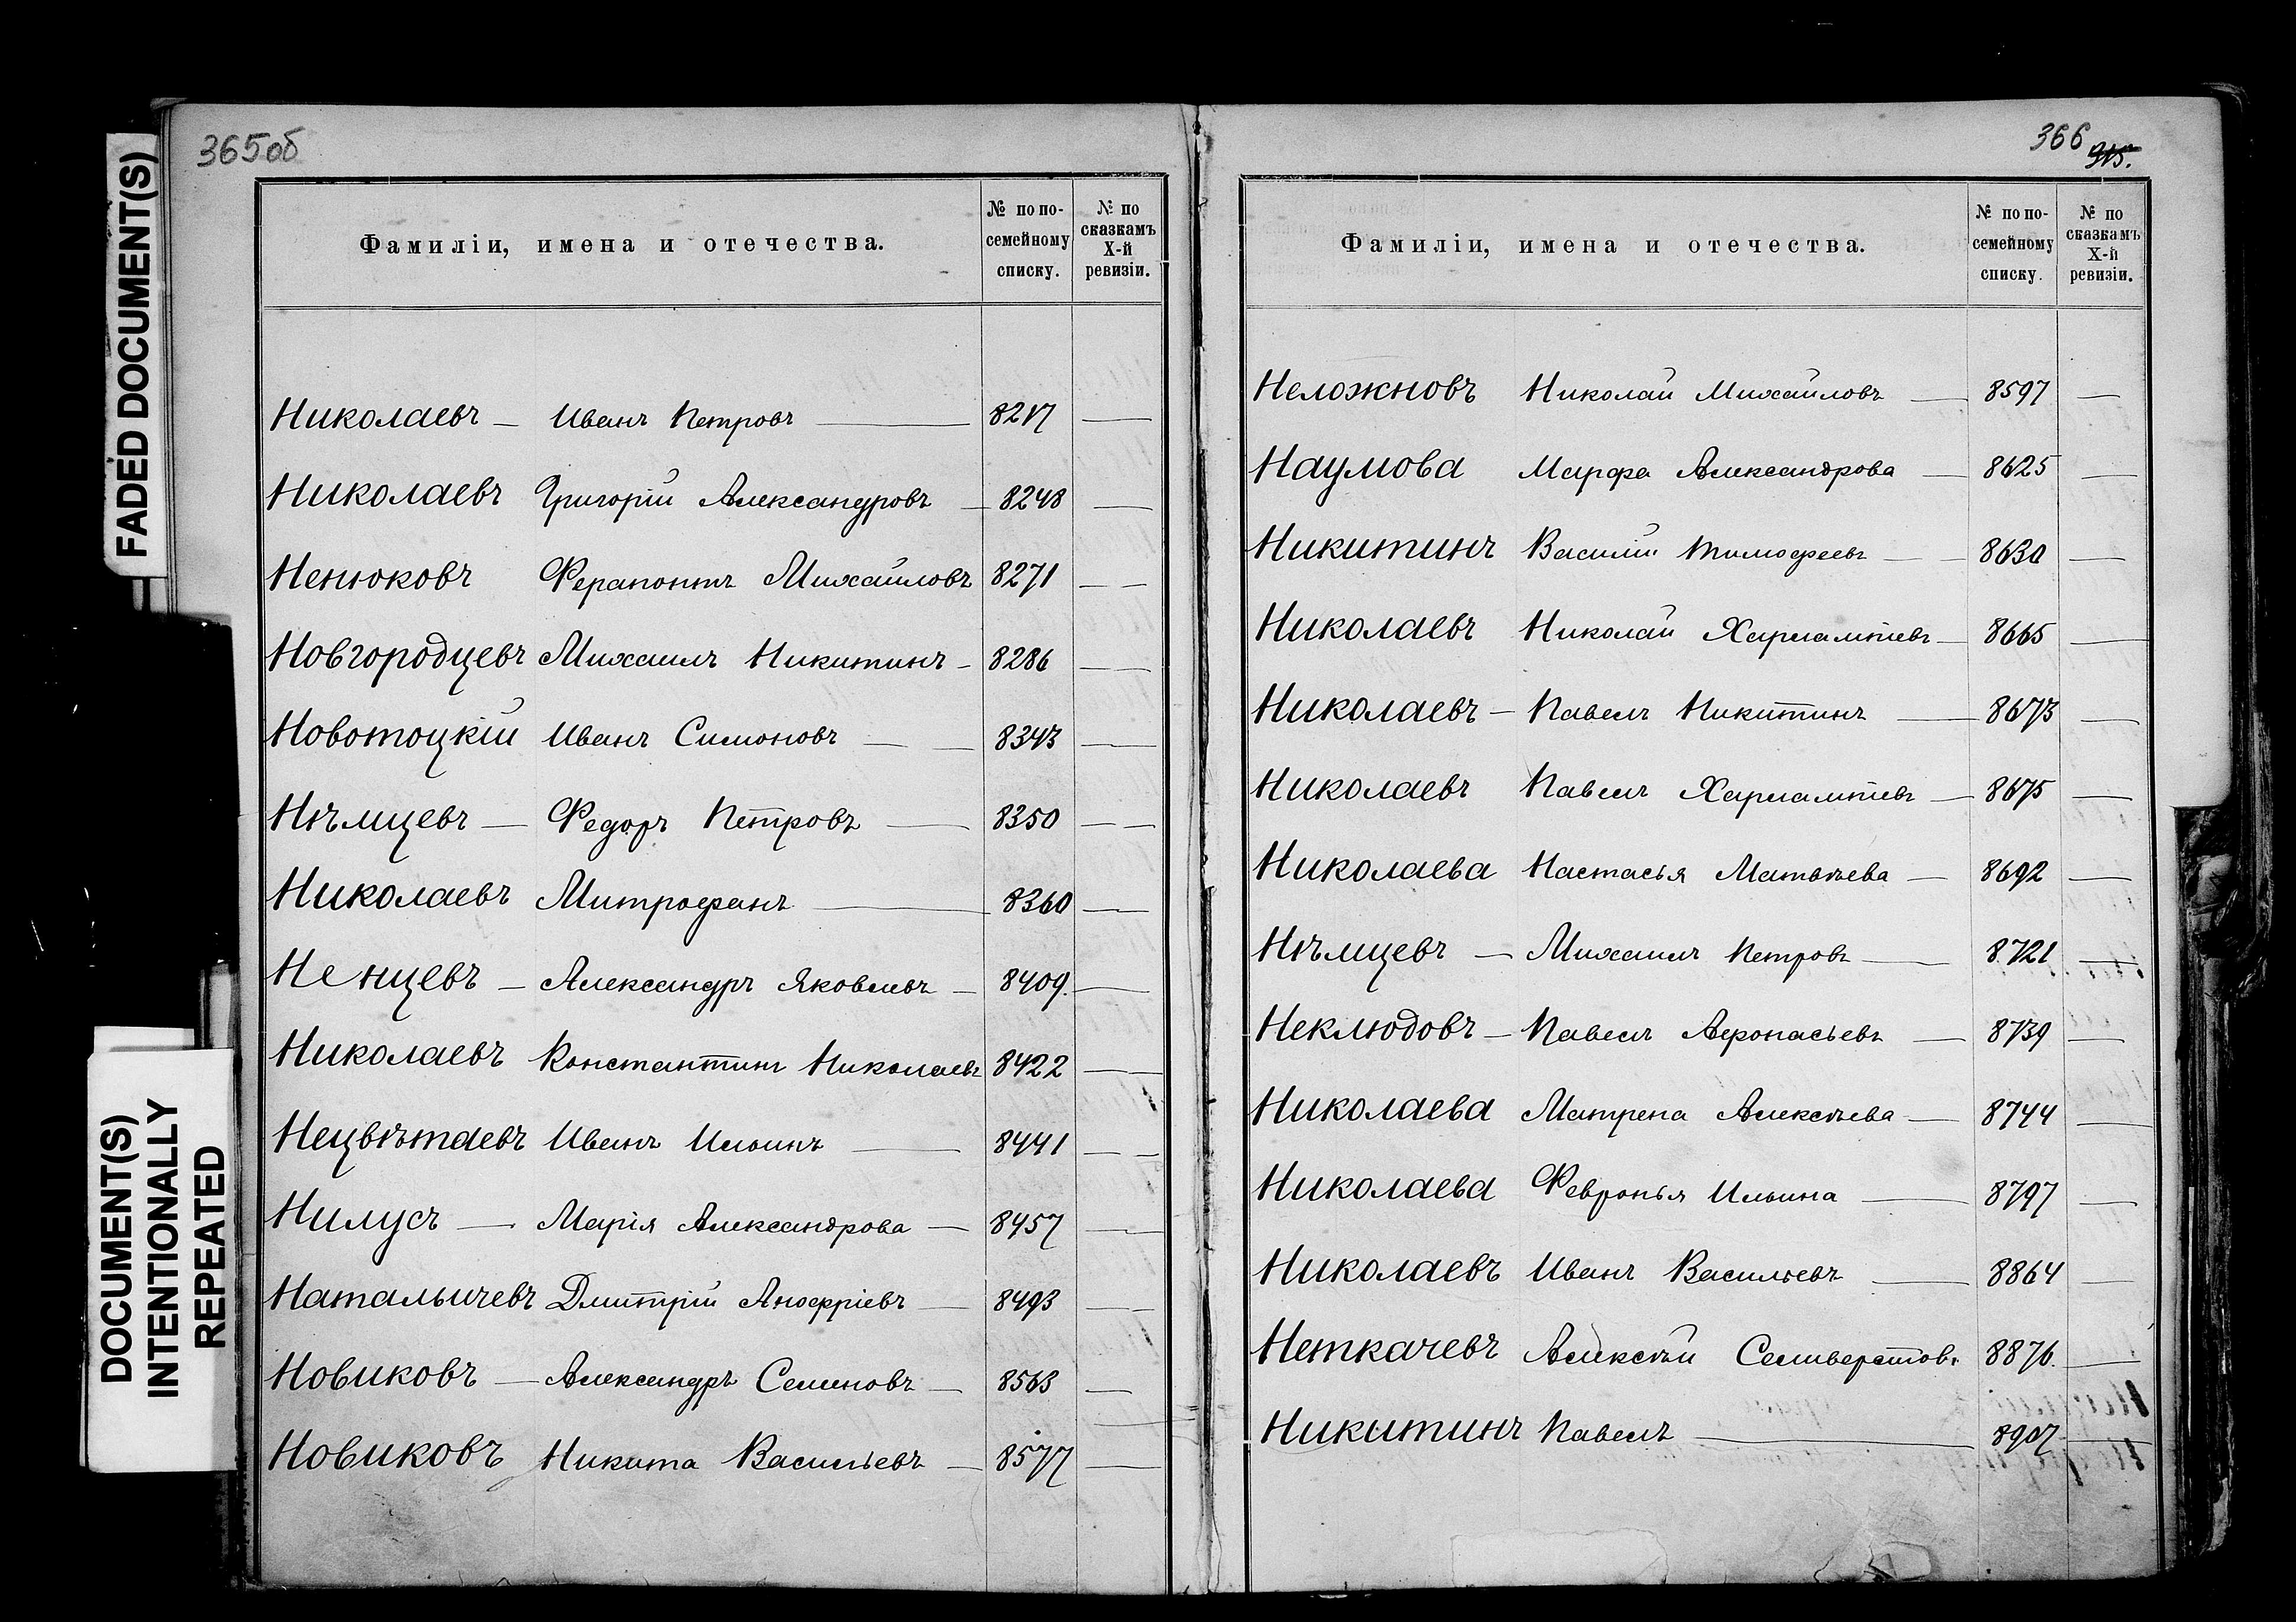 FADED DOCUMENT(S)
DOCUMENT(S)
INTENTIONALLY
REPEATED
365об
Фамиліи, имена и отечества.
№ по по-
семейному
списку.
№ по
сказкамъ
X-й
ревизіи.
Николаевъ — Иванъ Петровъ — 8217 —
Николаевъ Григорій Александровъ — 8248 —
Ненюковъ Ферапонтъ Михайловъ 8271 — —
Новгородцевъ Михаилъ Никитинъ — 8286 —
Новотоцкій Иванъ Симоновъ — — 8343 —
Нѣмцевъ — Федоръ Петровъ — 8350 — —
Николаевъ Митрофанъ — 8360 —
Ненцевъ — Александръ Яковлевъ — 8409. —
Николаевъ Константинъ Николаевъ 8422 —
Нецвѣтаевъ Иванъ Ильинъ — 8441 — —
Нилусъ — Марія Александрова — 8457 —
Натальичевъ Дмитрій Аноффріевъ — 8493 — —
Новиковъ — Александръ Семеновъ — 8563 —
Новиковъ Никита Васильевъ — 8577 —
366
915.
Фамиліи, имена и отечества.
№ по по-
семейному
списку.
№ по
сказкамъ
X-й
ревизіи.
Неложновъ Николай Михайловъ — 8597 —
Наумова Марфа Александрова — 8625 —
Никитинъ Василій Тимофеевъ — — 8630 —
Николаевъ Николай Харлампіевъ — 8665 —
Николаевъ — Павелъ Никитинъ — 8673 —
Николаевъ Павелъ Харлампіевъ — 8675 —
Николаева Настасья Матвѣева — 8692 —
Нѣмцевъ — Михаилъ Петровъ — 8721 —
Неклюдовъ — Павелъ Афонасьевъ — 8739 —
Николаева Матрена Алексѣева — 8744 —
Николаева Февронья Ильина — 8797 —
Николаевъ Иванъ Васильевъ — 8864 —
Неткачевъ Алексѣй Селиверстовъ 8876. —
Никитинъ Павелъ — 8907 —